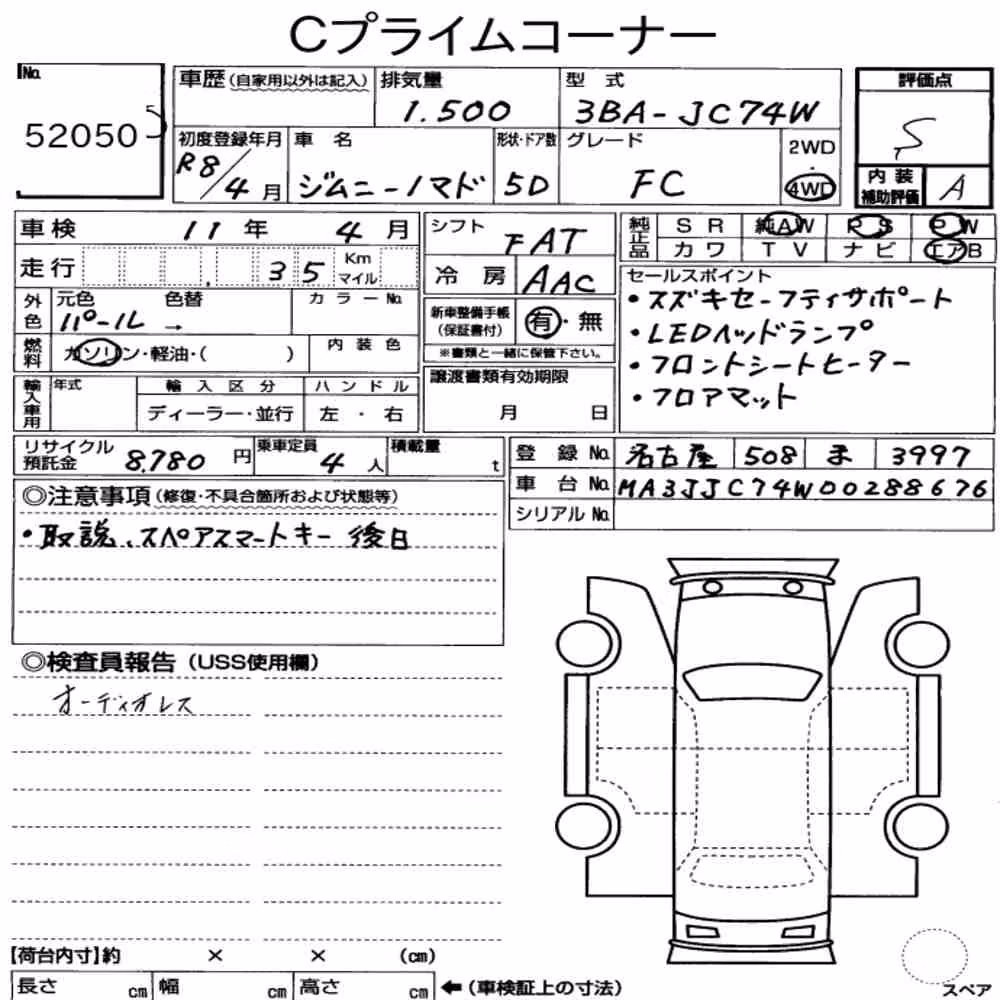 Cプライムコーナー
No. 52050 5
車歴(自家用以外は記入) 排気量 1.500 型式 3BA-JC74W
初度登録年月 R8/4月 車名 ジムニーノマド 形状・ドア数 5D グレード FC 2WD・4WD
評価点 S
内装補助評価 A
車検 11年 4月
走行 35 Km マイル
外色 元色 パール 色替 → カラーNo.
燃料 ガソリン・軽油・( ) 内装色
輸入車用 年式 輸入区分 ディーラー・並行 ハンドル 左・右
シフト FAT
冷房 AAC
新車整備手帳(保証書付) 有・無
※書類と一緒に保管下さい。
譲渡書類有効期限
月 日
純正品 SR 純AW PS PW
カワ TV ナビ エアB
セールスポイント
・スズキセーフティサポート
・LEDヘッドランプ
・フロントシートヒーター
・フロアマット
リサイクル預託金 8,780円 乗車定員 4人 積載量 t
登録No. 名古屋 508 ま 3997
車台No. MA3JJC74W00288676
シリアルNo.
◎注意事項(修復・不具合箇所および状態等)
・取説、スペアスマートキー 後日
◎検査員報告(USS使用欄)
オーディオレス
【荷台内寸】約 × × (cm)
長さ cm 幅 cm 高さ cm ←(車検証上の寸法)
スペア